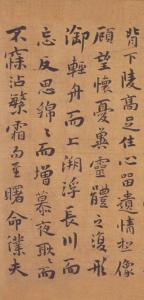 背下陵高足往心留遺情想像
顧望懷憂冀靈體之復形
御輕舟而上溯浮長川而
忘反思綿〻而增慕夜耿〻而
不寐沾繁霜而至曙命僕夫